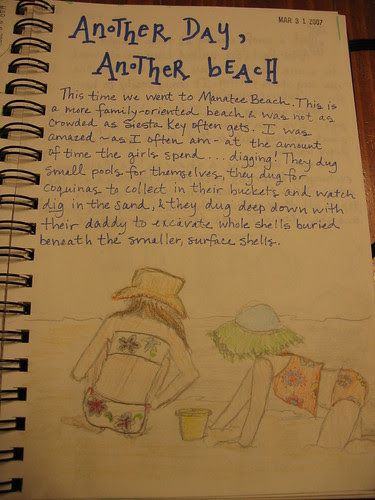 MAR 31 2007
Another Day,
Another beach
This time we went to Manatee Beach. This is
a more family-oriented beach & was not as
crowded as Siesta Key often gets. I was
amazed - as I often am - at the amount
of time the girls spend ... digging! They dug
small pools for themselves, they dug for
coquinas to collect in their buckets and watch
dig in the sand, & they dug deep down with
their daddy to excavate whole shells buried
beneath the smaller, surface shells.